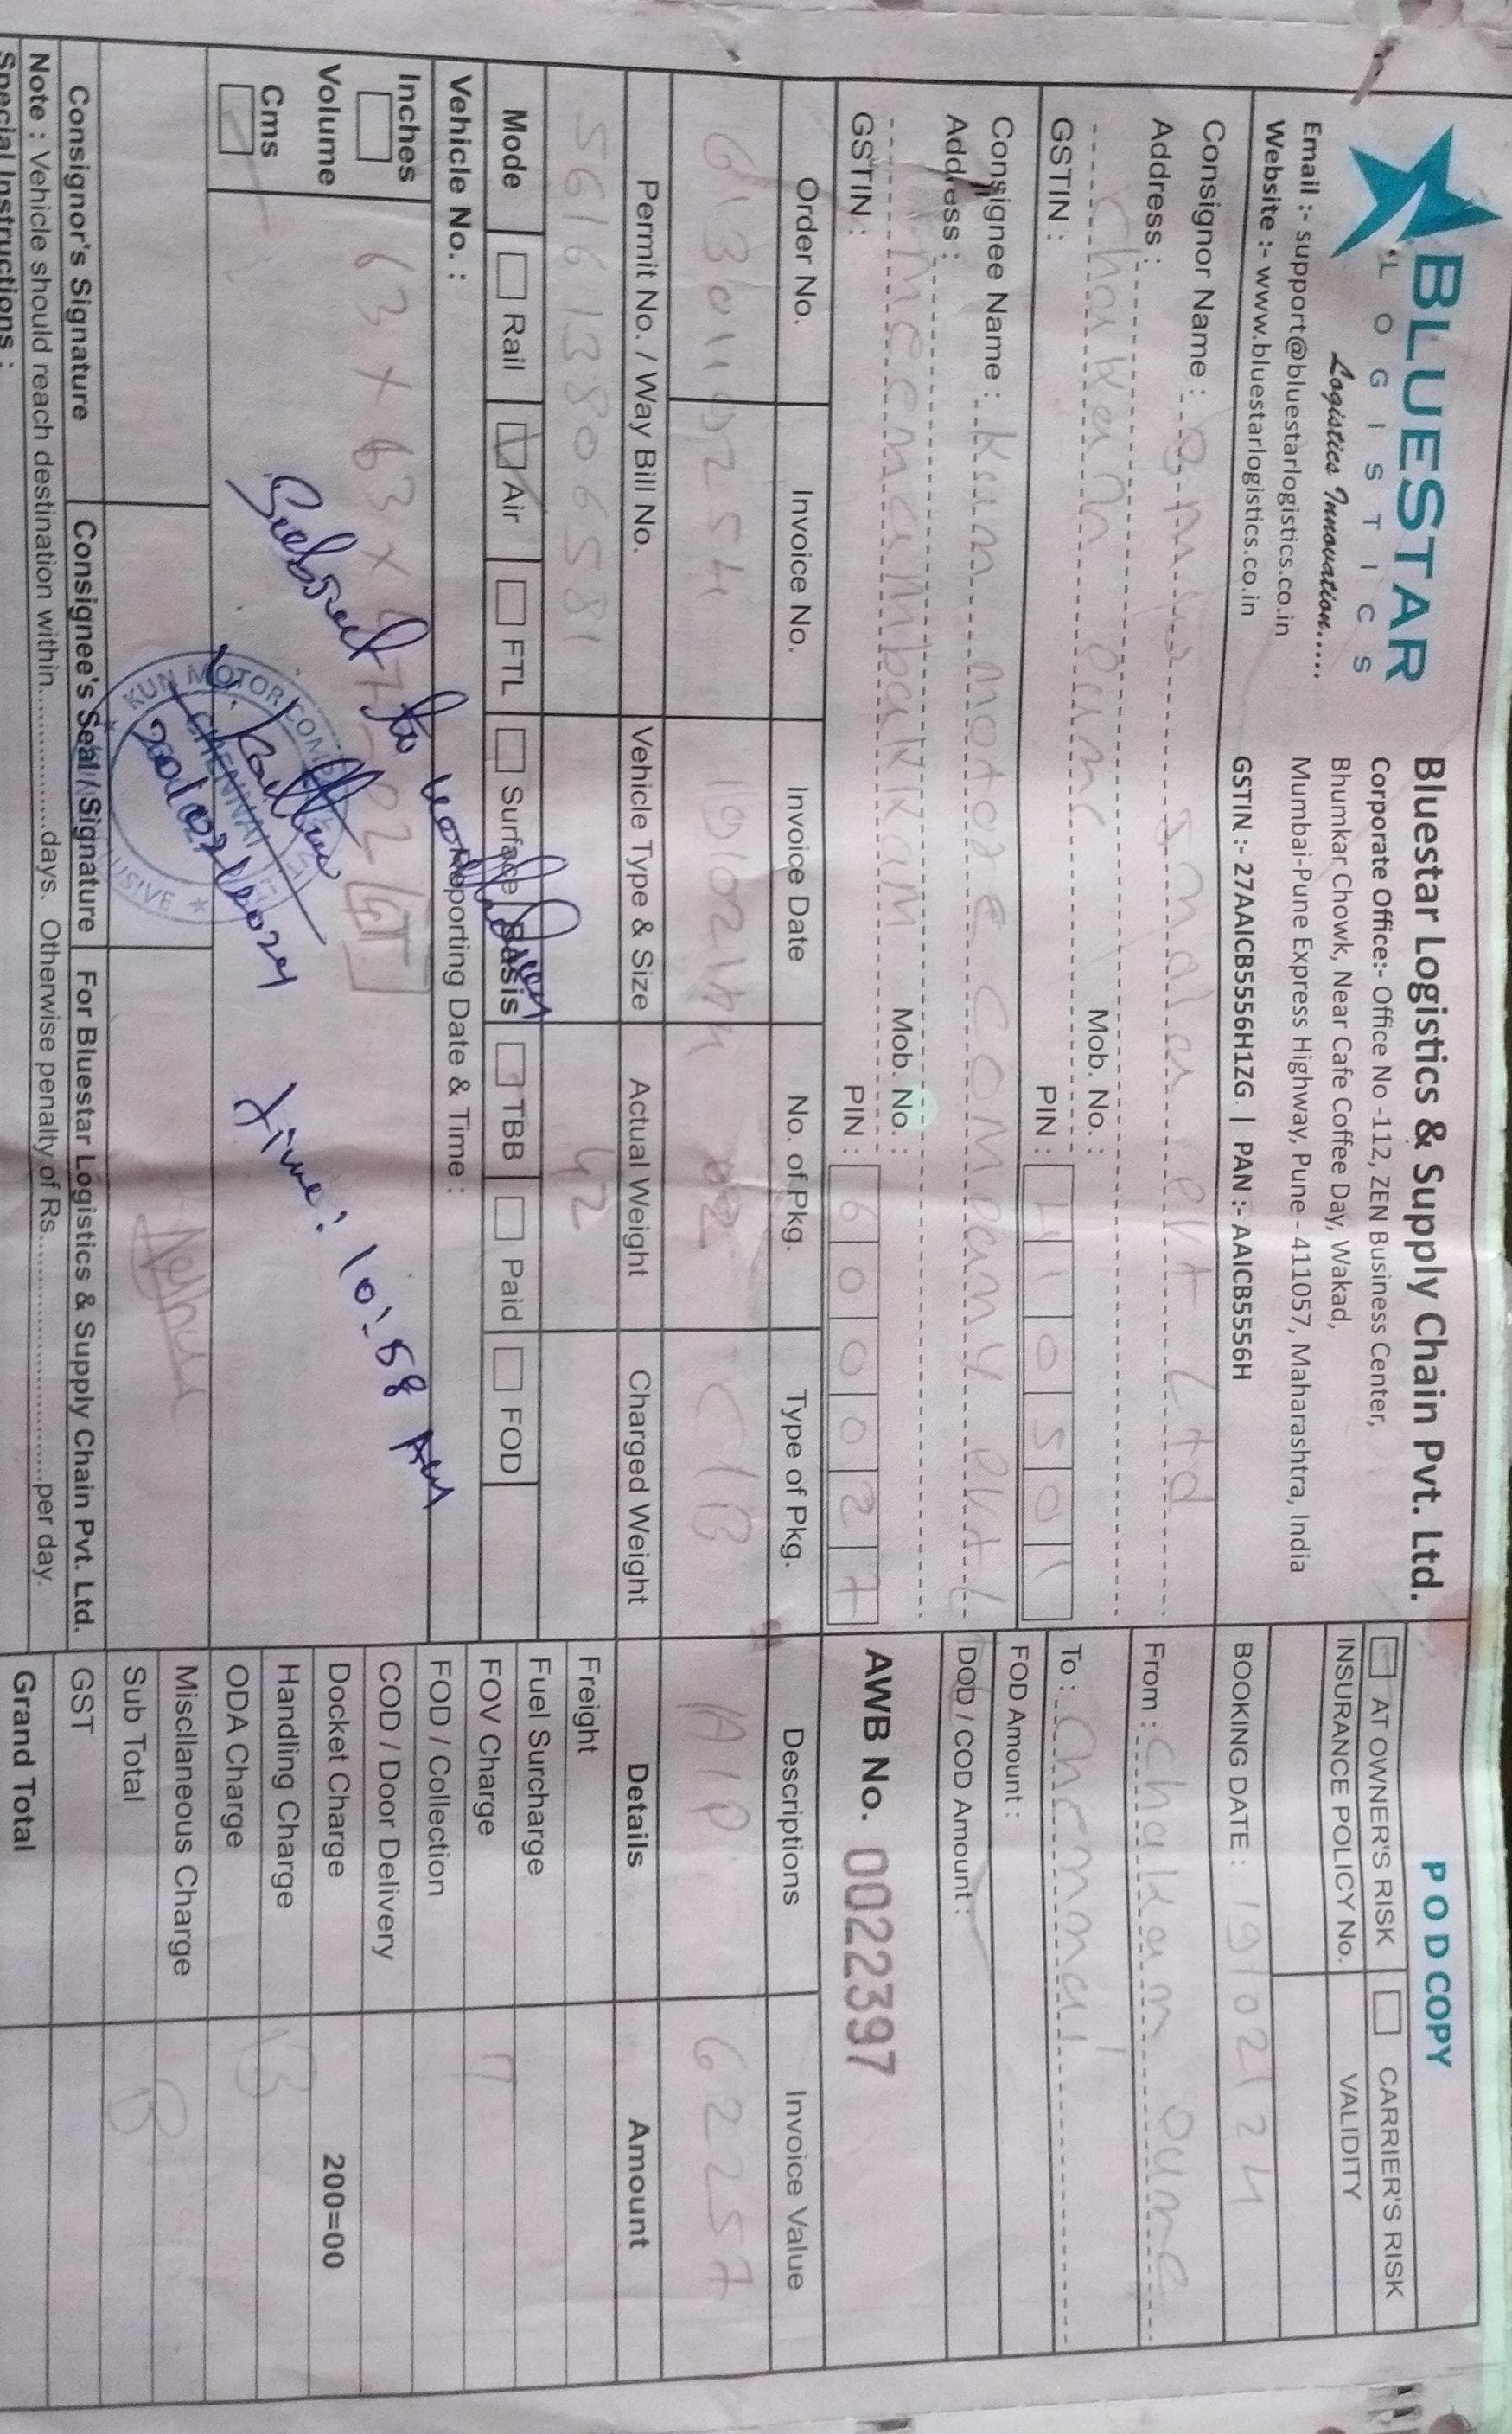 BLUESTAR
LOGISTICS
Logistics Innovation.....
Email :- support@bluestarlogistics.co.in
Website :- www.bluestarlogistics.co.in
Bluestar Logistics & Supply Chain Pvt. Ltd.
Corporate Office:- Office No -112, ZEN Business Center,
Bhumkar Chowk, Near Cafe Coffee Day, Wakad,
Mumbai-Pune Express Highway, Pune - 411057, Maharashtra, India
GSTIN :- 27AAICB5556H1ZG. | PAN :- AAICB5556H
POD COPY
AT OWNER'S RISK CARRIER'S RISK
INSURANCE POLICY No. VALIDITY
BOOKING DATE : 19/02/24
Consignor Name : Pvt Ltd
Address :
Chakan Pune Mob. No. :
GSTIN : PIN : 410501
From : Chakan Pune
To : Chennai
FOD Amount :
DOD / COD Amount :
Consignee Name : Kun motore COMPany Pvt L
Address :
meenambakkam Mob. No. :
GSTIN : PIN : 600027
AWB No. 0022397
Order No. Invoice No. Invoice Date No. of Pkg. Type of Pkg. Descriptions Invoice Value
6130110254 19/02/24 02 C/B A/P 62257
Permit No. / Way Bill No. Vehicle Type & Size Actual Weight Charged Weight Details Amount
561613806581 42
Freight
Fuel Surcharge
Mode Rail Air FTL Surface Basis TBB Paid FOD
FOV Charge
Vehicle No. : Reporting Date & Time :
FOD / Collection
Inches
63 x 63 x 47-02
COD / Door Delivery
Volume
Docket Charge 200=00
Cms
Handling Charge
ODA Charge
Subject to
Time: 10:58 AM
20/02/2024
KUN MOTOR COMP
CHENNAI
Miscllaneous Charge
Sub Total
Consignor's Signature Consignee's Seal / Signature For Bluestar Logistics & Supply Chain Pvt. Ltd.
GST
Note : Vehicle should reach destination within................days. Otherwise penalty of Rs.............................per day.
Grand Total
Special Instructions :